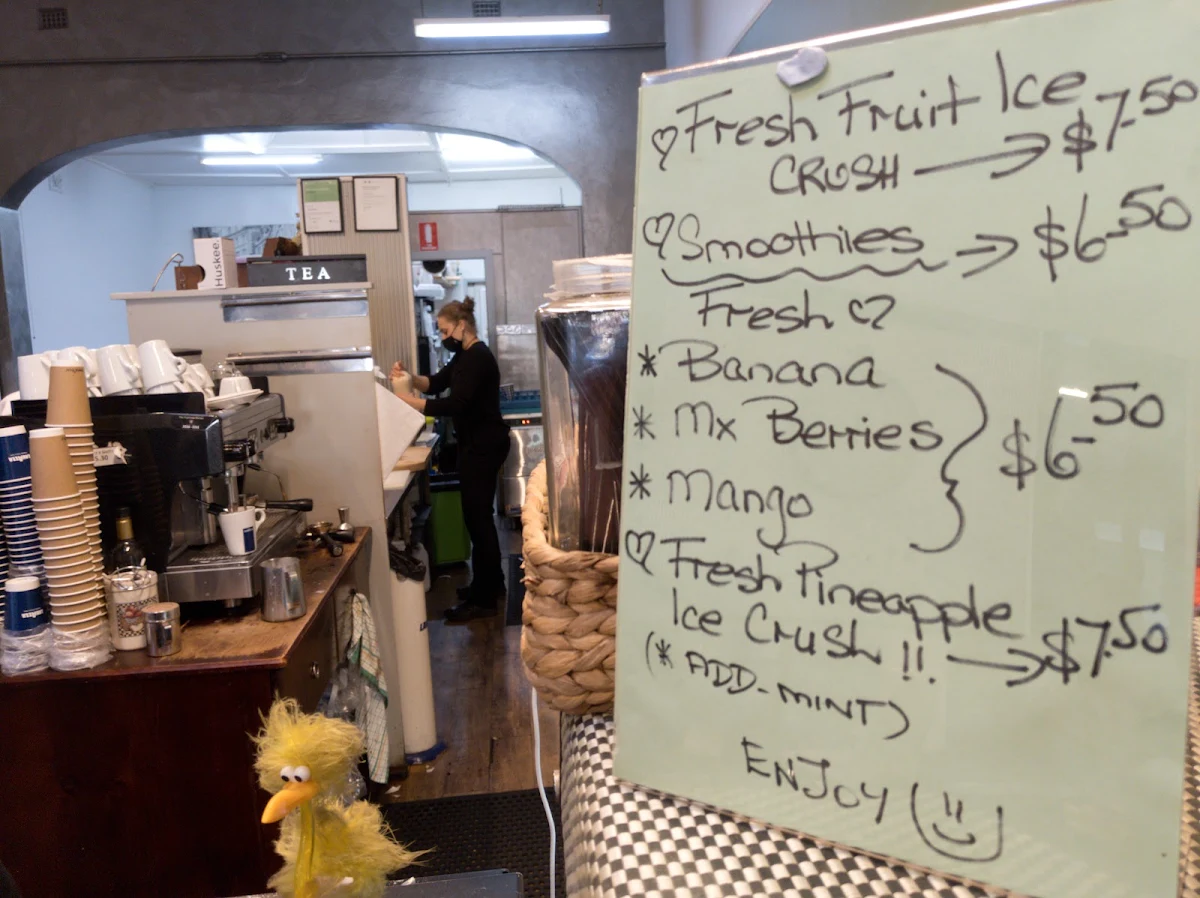 Fresh Fruit Ice
CRUSH → $7.50
Smoothies → $6.50
Fresh
* Banana
* Mx Berries
* Mango
$6.50
Fresh Pineapple
Ice Crush !! → $7.50
(* ADD-MINT)
ENJOY
Huskee.
TEA